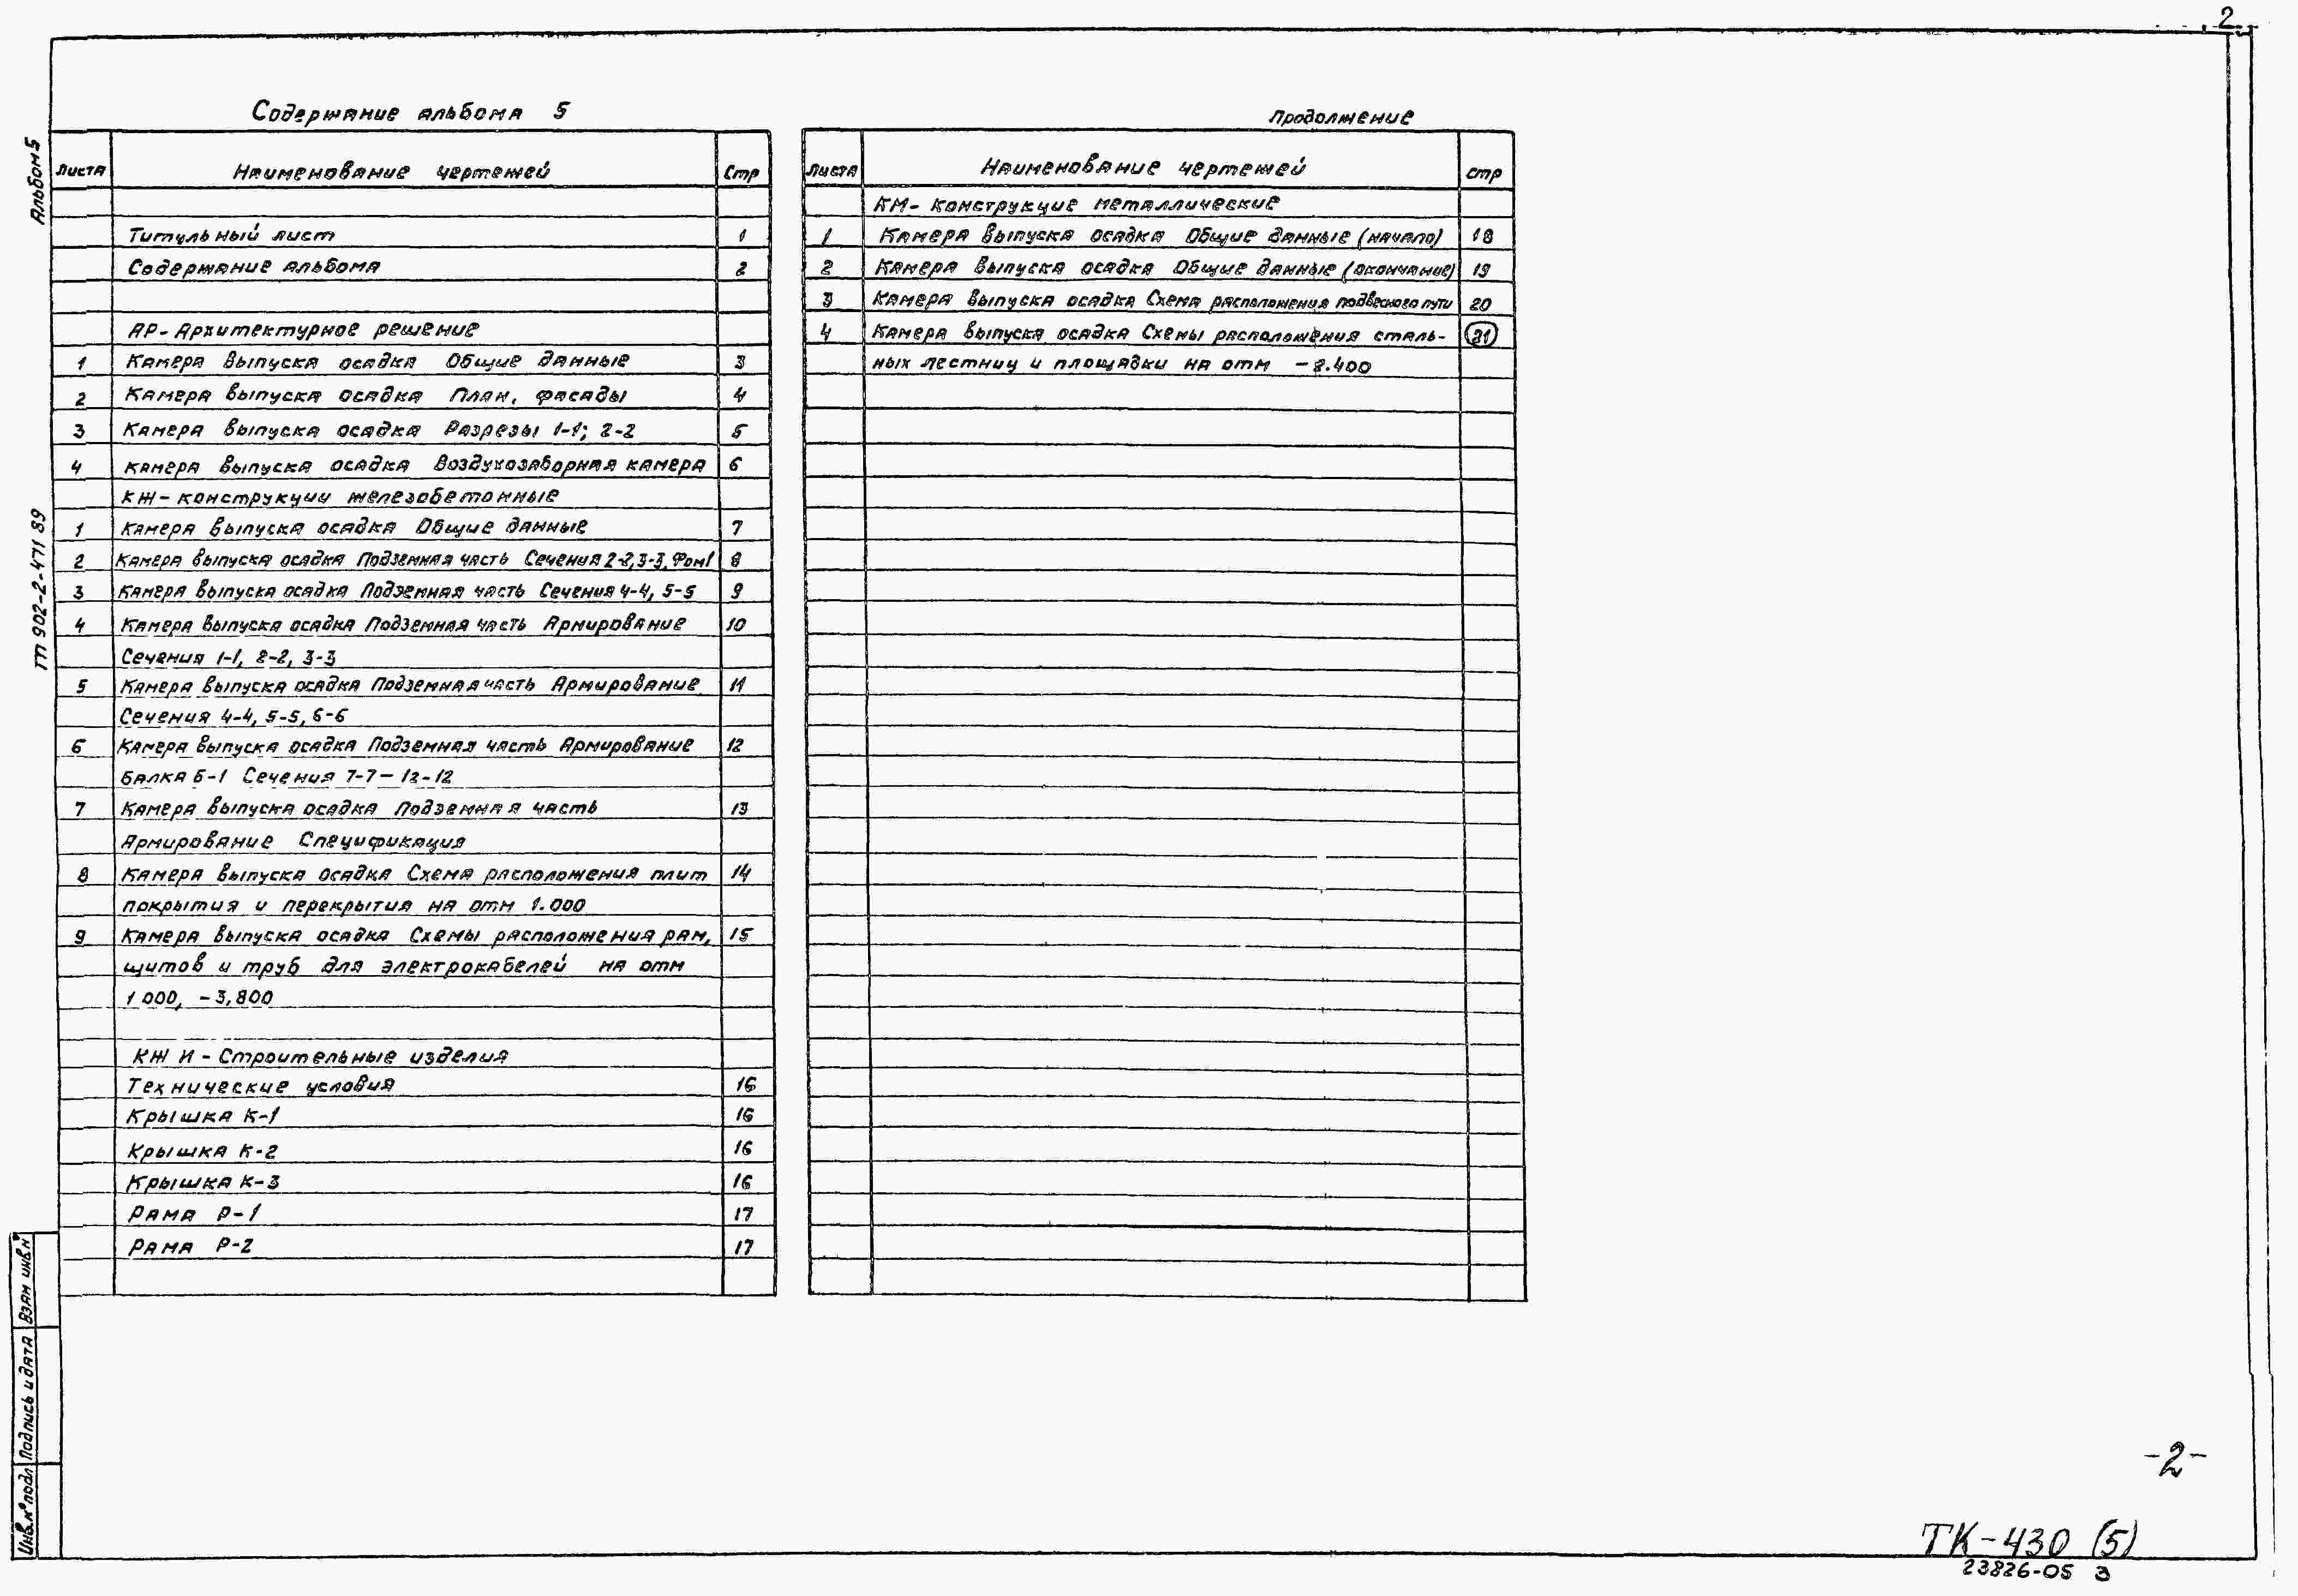 2
Содержание альбома 5
Листа Наименование чертежей Стр
Титульный лист 1
Содержание альбома 2
АР-Архитектурное решение
1 Камера выпуска осадка Общие данные 3
2 Камера выпуска осадка План, фасады 4
3 Камера выпуска осадка Разрезы 1-1; 2-2 5
4 Камера выпуска осадка Воздухозаборная камера 6
КЖ-конструкции железобетонные
1 Камера выпуска осадка Общие данные 7
2 Камера выпуска осадка Подземная часть Сечения 2-2,3-3, Фом1 8
3 Камера выпуска осадка Подземная часть Сечения 4-4, 5-5 9
4 Камера выпуска осадка Подземная часть Армирование 10
Сечения 1-1, 2-2, 3-3
5 Камера выпуска осадка Подземная часть Армирование 11
Сечения 4-4, 5-5, 6-6
6 Камера выпуска осадка Подземная часть Армирование 12
Балка Б-1 Сечения 7-7-12-12
7 Камера выпуска осадка Подземная часть 13
Армирование Спецификация
8 Камера выпуска осадка Схема расположения плит 14
покрытия и перекрытия на отм 1.000
9 Камера выпуска осадка Схемы расположения рам, 15
щитов и труб для электрокабелей на отм
1 000, -3,800
КЖ И-Строительные изделия
Технические условия 16
Крышка К-1 16
Крышка К-2 16
Крышка К-3 16
Рама Р-1 17
Рама Р-2 17
Продолжение
Листа Наименование чертежей стр
КМ-Конструкцие металлические
1 Камера выпуска осадка Общие данные (начало) 18
2 Камера выпуска осадка Общие данные (окончание) 19
3 Камера выпуска осадка Схема расположения подвесного пути 20
4 Камера выпуска осадка Схемы расположения сталь- 21
ных лестниц и площадки на отм -2.400
Альбом 5
т 902-2-471 89
Взам инв.№
Подпись и дата
Инв.№ подл
-2-
ТК-430 (5)
23826-05 3